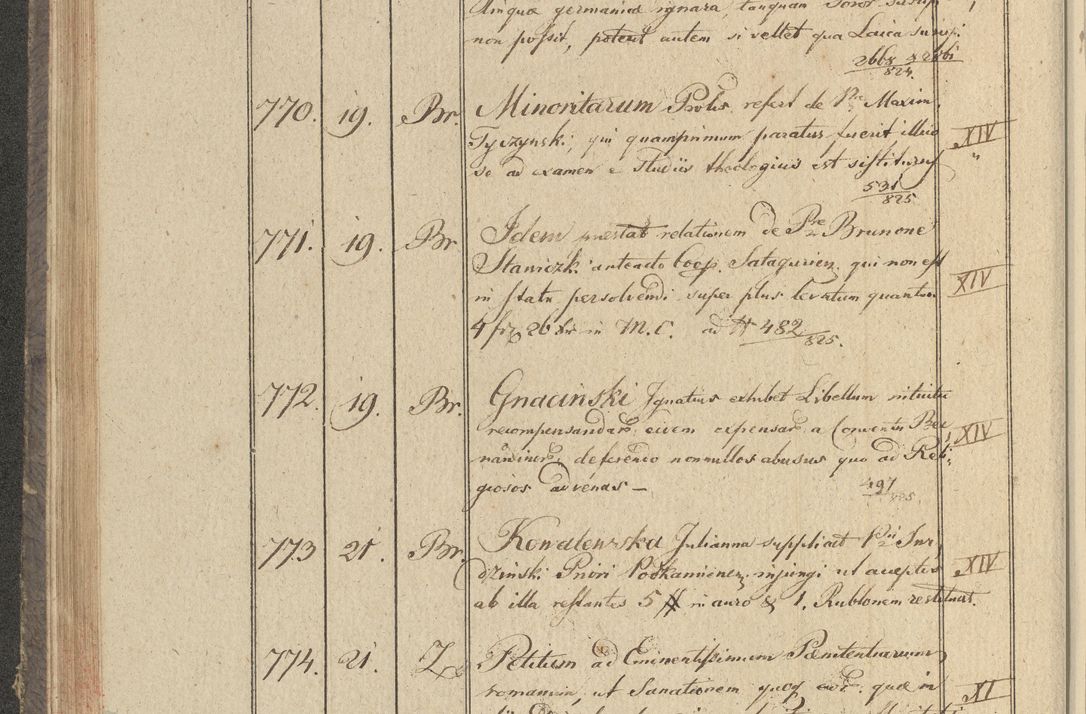 linguæ germaniæ ignara, tanquam Soror suscipi
non possit, poterit autem si vellet qua Laica suscipi.
2668 3286i
824
770. 19. Br. Minoritarum Prolis refert de Pre Maxim.
Tyczynski, qui quamprimum paratus fuerit illico XIV
se ad examen e studiis theologicis est sistiturus "
531
825
771. 19. Br. Idem præstat relationem de Pre Brunone
Staniczk. anteacto Coop. Satagurien. qui non est
in statu persolvendi super plus levatum quantum XIV
4 frz 26 xr in M.C. ad N 482
825.
772. 19. Br. Gnaciński Ignatius exhibet Libellum intuitu
recompensandar. eidem expensar. a Conventu Ber XIV
nardinor. deferendo nonnullos abusus quo ad Reli
giosos advenas —
497
825
773 21. Br. Kowalewska Julianna supplicat Psii Sur
dzinski Priori Podkaminen. injungi ut acceptos XIV
ab illa restantes 5 # in auro & 1. Rublonem restituat.
774. 21. Z Petitum ad Eminentissimum Pœnitentiarium
romanum, ut Sanationem quoq quæ in XI